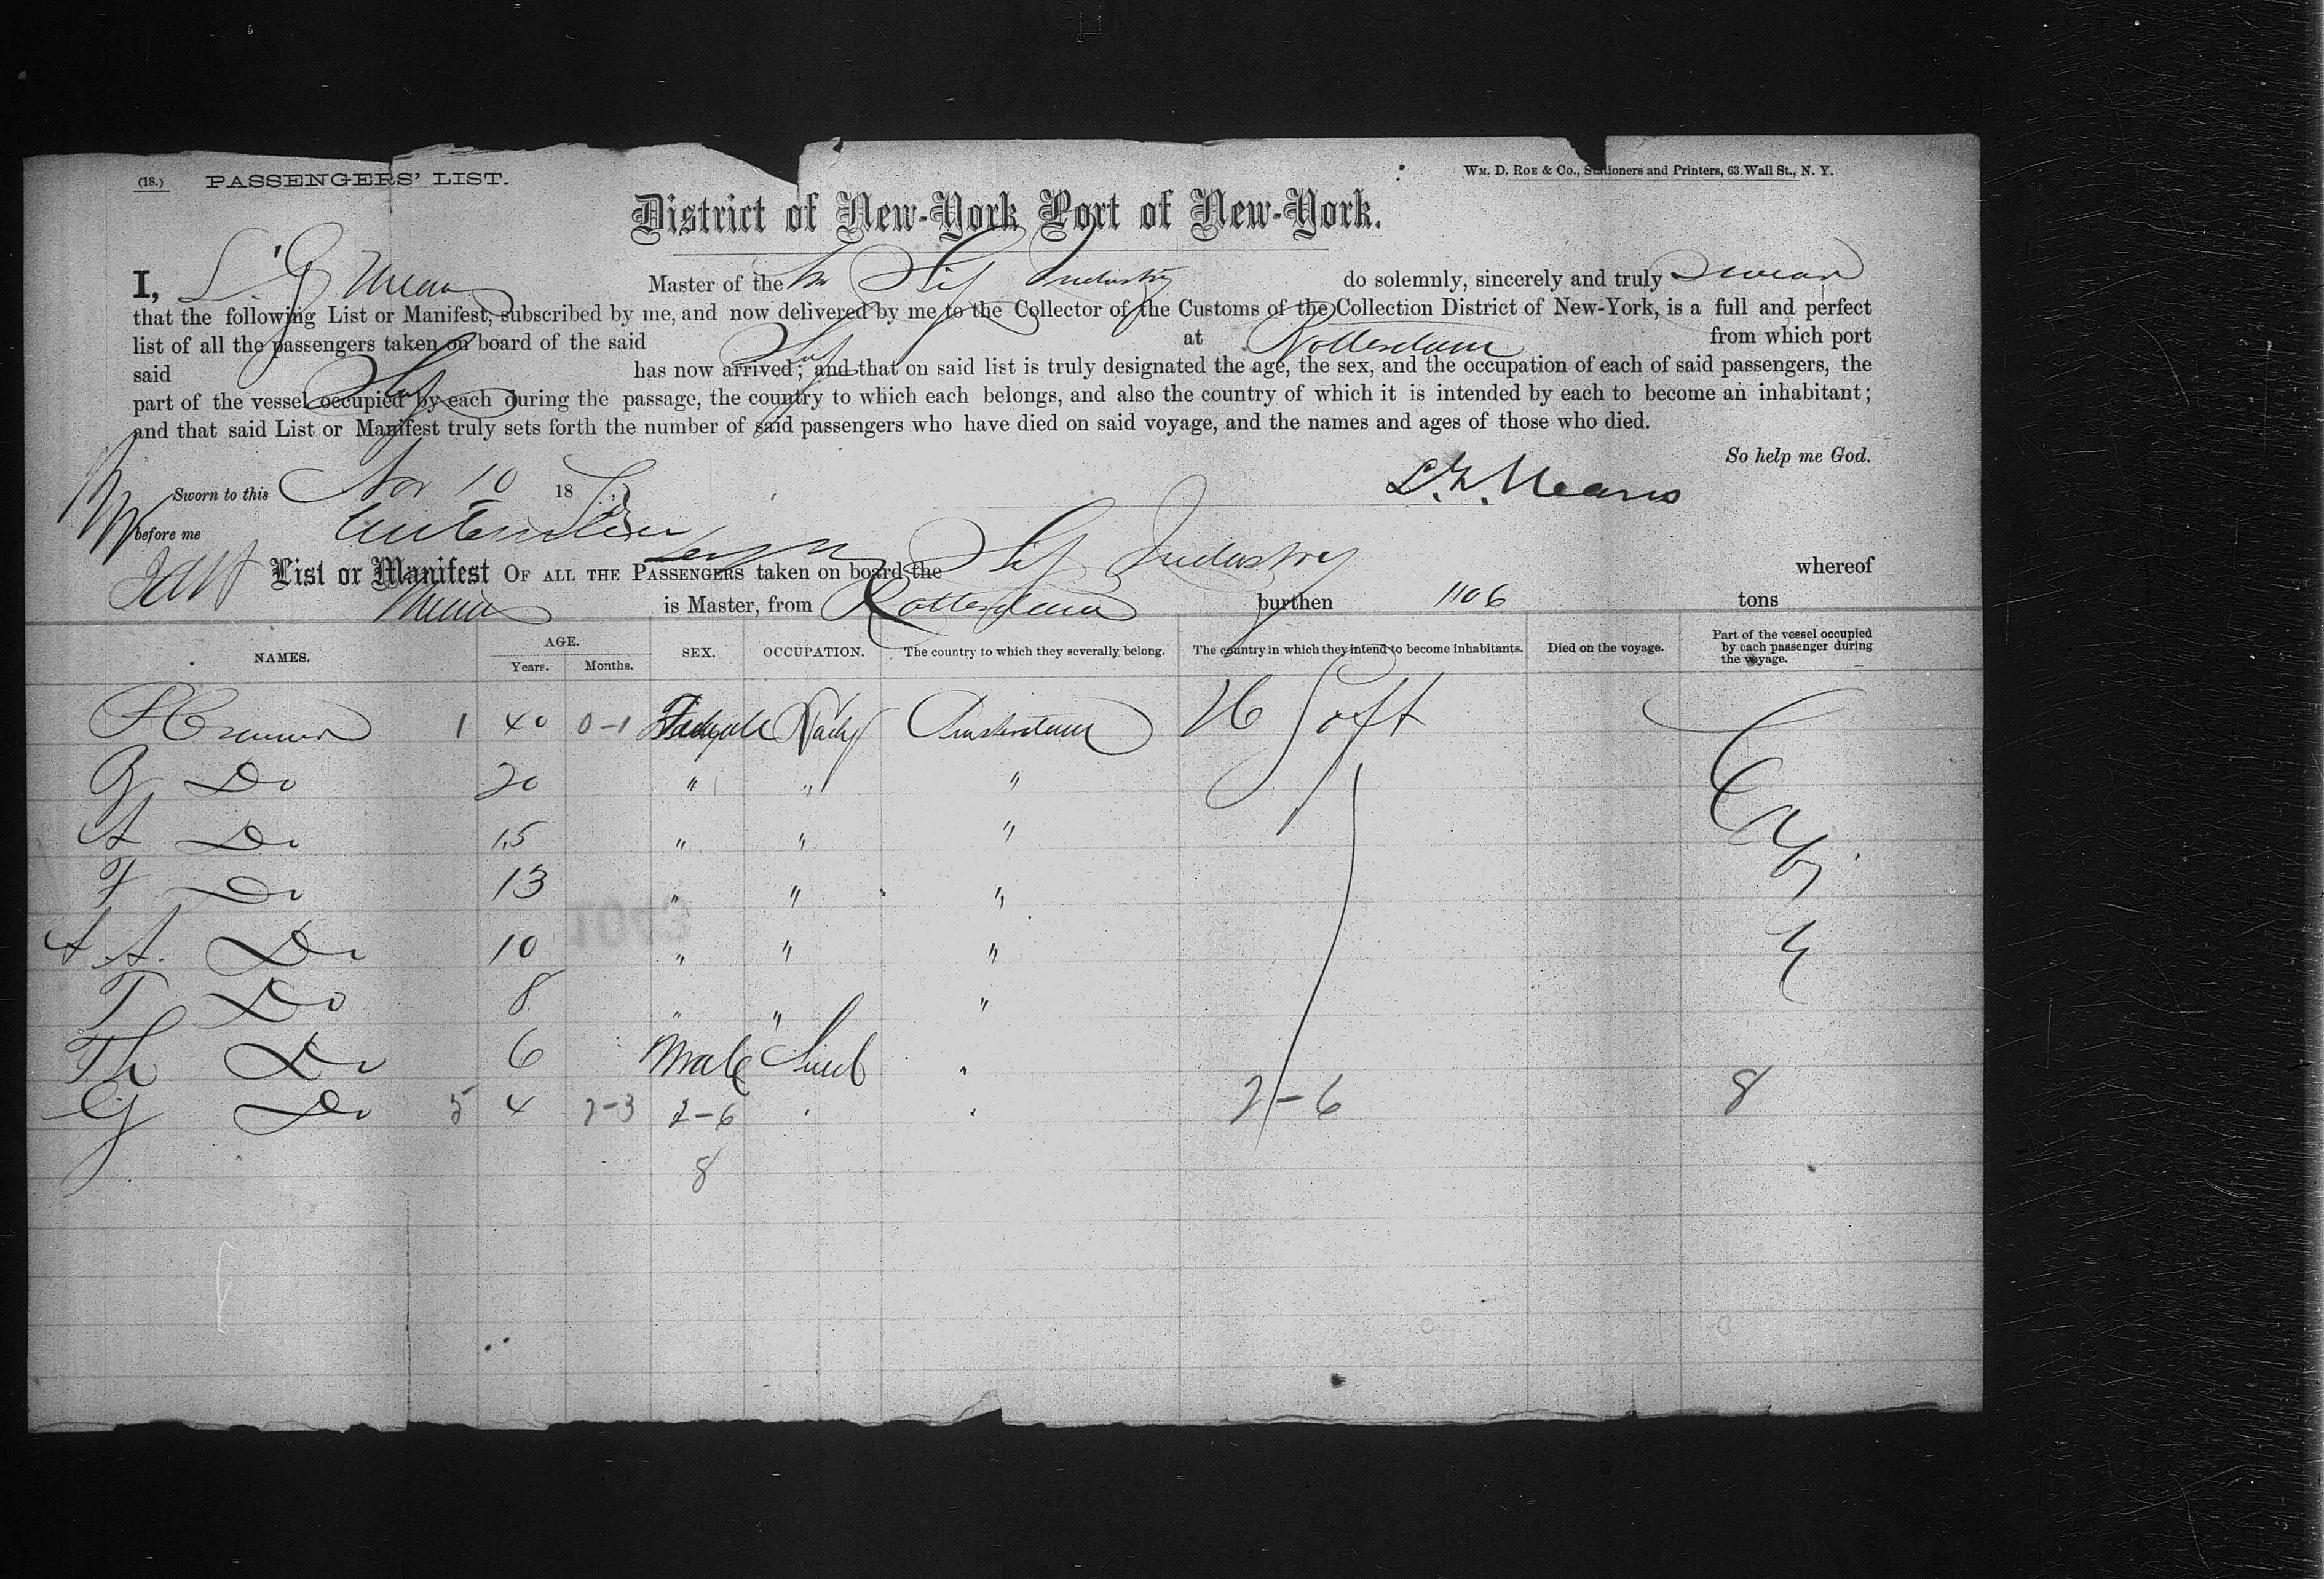 (18.) PASSENGERS' LIST.
WM. D. ROE & CO., Stationers and Printers, 63 Wall St., N. Y.
District of New-York Port of New-York.
I, Master of the Industry do solemnly, sincerely and truly swear
that the following List or Manifest, subscribed by me, and now delivered by me to the Collector of the Customs of the Collection District of New-York, is a full and perfect
list of all the passengers taken on board of the said at Rotterdam from which port
said has now arrived; and that on said list is truly designated the age, the sex, and the occupation of each of said passengers, the
part of the vessel occupied by each during the passage, the country to which each belongs, and also the country of which it is intended by each to become an inhabitant;
and that said List or Manifest truly sets forth the number of said passengers who have died on said voyage, and the names and ages of those who died.
So help me God.
Sworn to this Nov 10 18
before me
List or Manifest OF ALL THE PASSENGERS taken on board the Industry whereof
is Master, from Rotterdam burthen 1106 tons
NAMES. AGE. Years. Months. SEX. OCCUPATION. The country to which they severally belong. The country in which they intend to become inhabitants. Died on the voyage. Part of the vessel occupied by each passenger during the voyage.
1 40 0-1 Lady Amsterdam
G Do 20 " " "
A Do 15 " " "
F Do 13 " " "
A A. Do 10 " " "
T Do 8 " " "
Th Do 6 Male "
G Do 5 4 2-3 2-6 " " 2-6 8
8